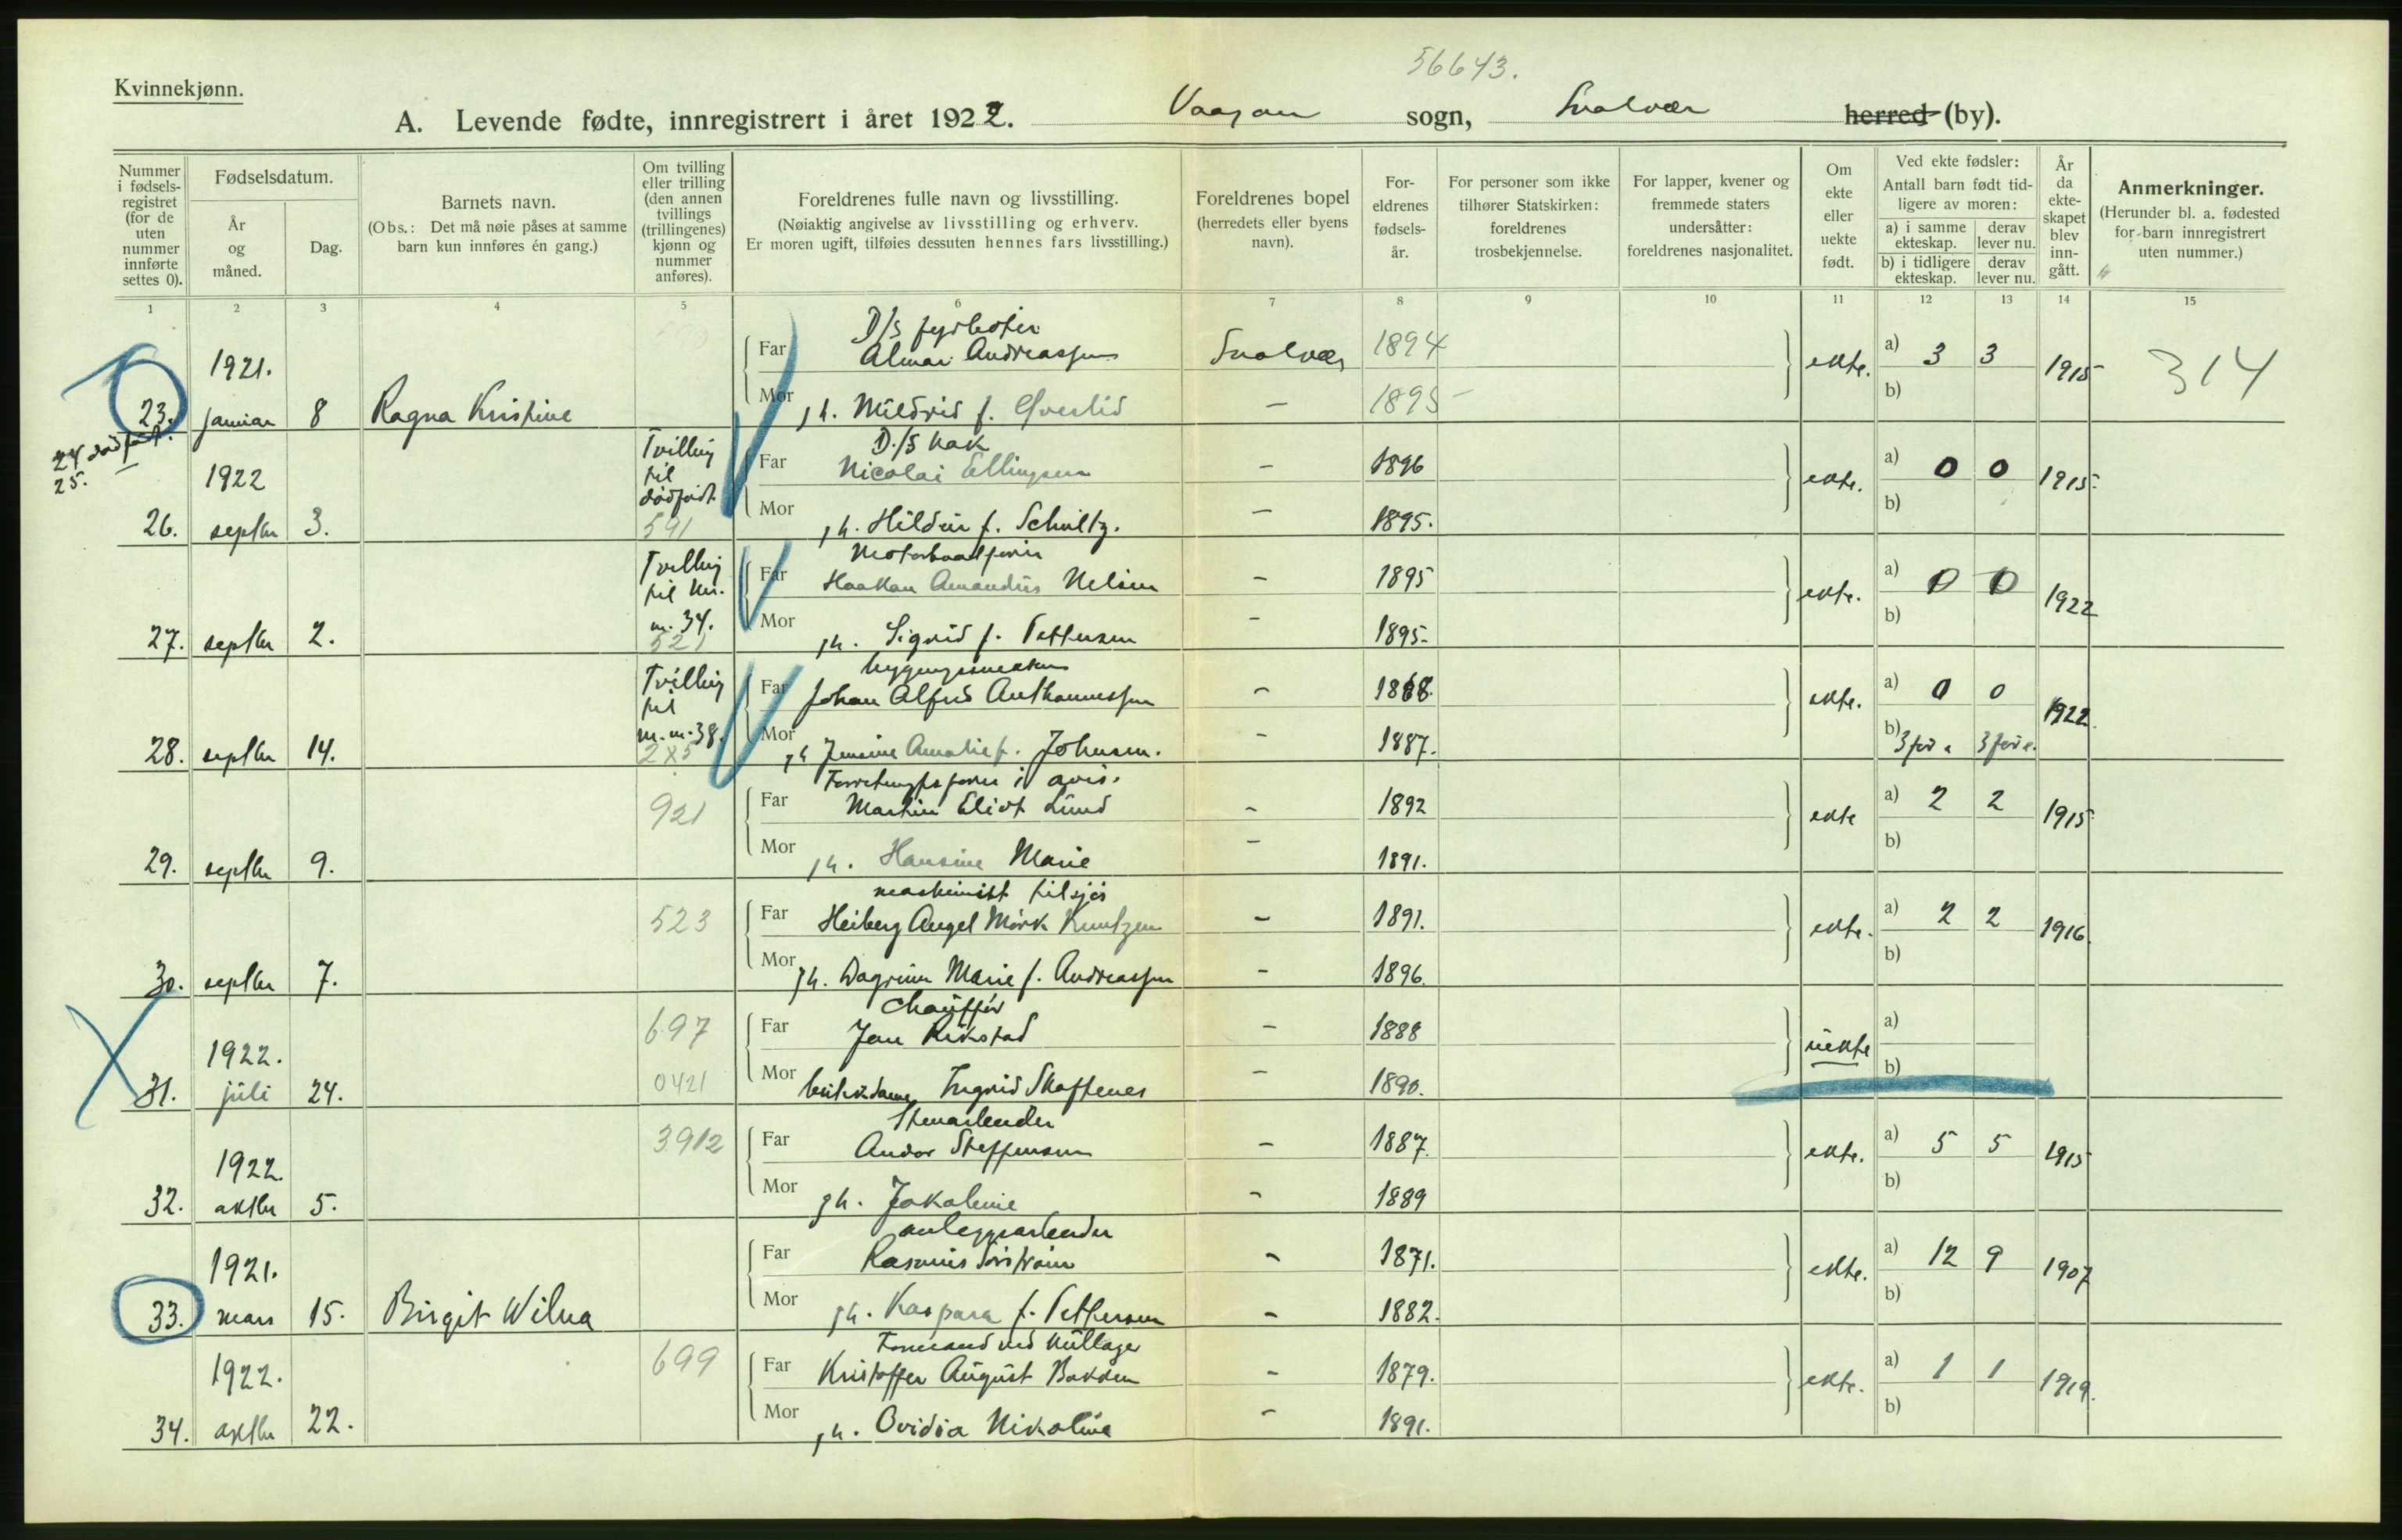 56643.
Kvinnekjønn.
A. Levende fødte, innregistrert i året 1922. Vaagan sogn, Svolvær herred (by).
Nummer i fødselsregistret (for de uten nummer innførte settes 0).
Fødselsdatum.
År og måned.
Dag.
Barnets navn.
(Obs.: Det må nøie påses at samme barn kun innføres én gang.)
Om tvilling eller trilling (den annen tvillings (trillingenes) kjønn og nummer anføres).
Foreldrenes fulle navn og livsstilling.
(Nøiaktig angivelse av livsstilling og erhverv. Er moren ugift, tilføies dessuten hennes fars livsstilling.)
Foreldrenes bopel (herredets eller byens navn).
Foreldrenes fødselsår.
For personer som ikke tilhører Statskirken: foreldrenes trosbekjennelse.
For lapper, kvener og fremmede staters undersåtter: foreldrenes nasjonalitet.
Om ekte eller uekte født.
Ved ekte fødsler:
Antall barn født tidligere av moren:
a) i samme ekteskap. derav lever nu.
b) i tidligere ekteskap. derav lever nu.
År da ekteskapet blev inngått.
Anmerkninger.
(Herunder bl. a. fødested for barn innregistrert uten nummer.)
1 2 3 4 5 6 7 8 9 10 11 12 13 14 15
D/S fyrbøter
1921. Far Almar Andreassen Svolvær 1894 ekte. a) 3 3 1915 314
23. januar 8 Ragna Kristine Mor h. Mildrid f. 1895 b)
24 dødfødt.
25.
D./S kok
1922 Tvilling til dødfødt Far Nicolai Ellingsen - 1896 ekte. a) 0 0 1915
26. septbr 3. 591 Mor h. Hildur f. Schultz. - 1895. b)
Tvilling til m. 34. Far Haakon Amandus Nelsen - 1895 ekte. a) 0 0 1922
27. septbr 2. 521 Mor h. Sigrid f. Pettersen - 1895. b)
Tvilling til m. 38. Far Johan Alfred - 1868. ekte. a) 0 0 1922.
28. septbr 14. 2x5 Mor h Jensine Amalie f. Johnsen. - 1887. b) 3 før 3 før
i avis.
921 Far Martin Eliot Lund - 1892 ekte a) 2 2 1915
29. septbr 9. Mor h. Hansine Marie - 1891. b)
maskinist tilsjøs
523 Far Heiberg Angel Mörk Kuntzen - 1891. ekte. a) 2 2 1916.
30. septbr 7. Mor h. Dagrun Marie f. Andreassen - 1896. b)
Chauffør
1922. 697 Far Jan Rikstad - 1888 uekte a)
31. juli 24. 0421 Mor butikdame Ingrid Skaftenes - 1890. b)
Stenarbeider
1922. 3912 Far Andor Steffensen - 1887. ekte. a) 5 5 1915
32. oktbr 5. Mor h. Jakobine - 1889 b)
anleggsarbeider
1921. Far Rasmus - 1871. ekte. a) 12 9 1907
33. mars 15. Birgit Wilna Mor h. Kaspara f. Pettersen - 1882. b)
Formand ved kullager
1922. 699 Far Kristoffer August - 1879. ekte. a) 1 1 1919.
34. oktbr 22. Mor h. Ovidia Nikoline - 1891. b)